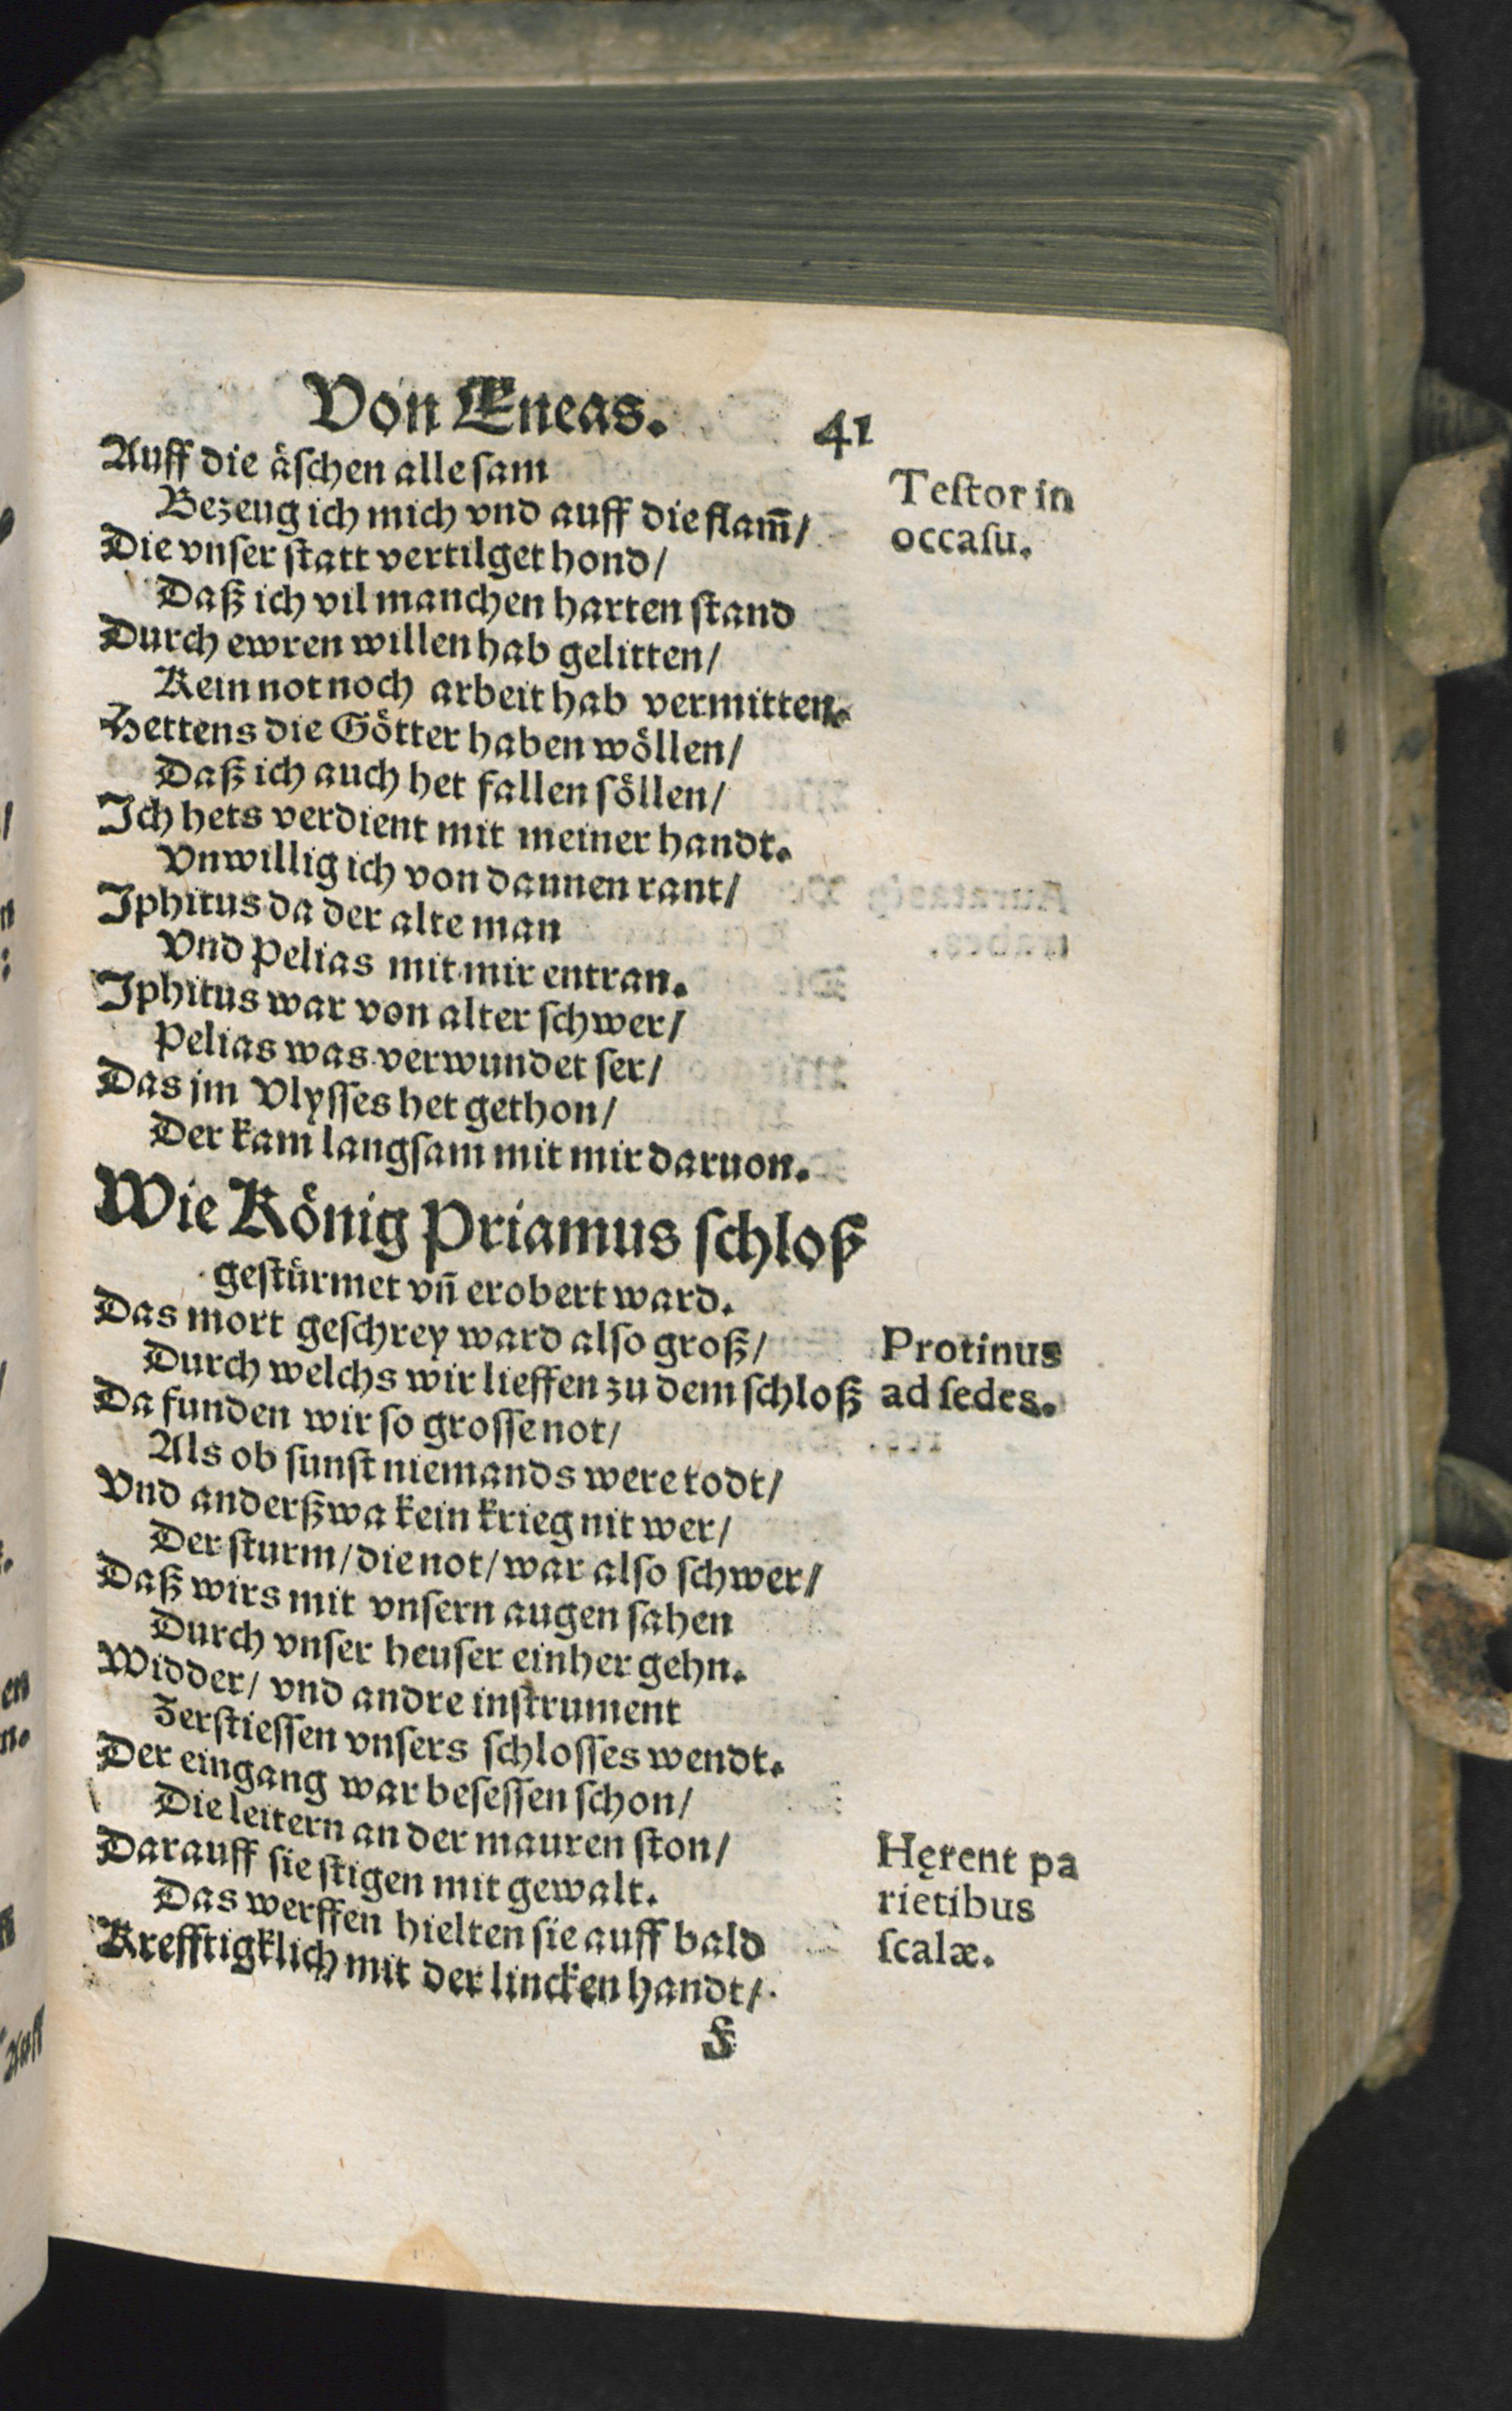 Von Eneas. 41
Auff die äſchen alle ſam
Bezeug ich mich vnd auff die flam̃/
Die vnſer ſtatt vertilget hond/
Daß ich vil manchen harten ſtand
Durch ewren willen hab gelitten/
Kein not noch arbeit hab vermitten.
Hettens die Götter haben wöllen/
Daß ich auch het fallen ſöllen/
Ich hets verdient mit meiner handt.
Vnwillig ich von dannen rant/
Iphitus da der alte man
Vnd Pelias mit mir entran.
Iphitus war von alter ſchwer/
Pelias was verwundet ſer/
Das jm Vlyſſes het gethon/
Der kam langſam mit mir daruon.
Teſtor in
occaſu.
Wie König Priamus ſchloß
geſtürmet vñ erobert ward.
Das mort geſchrey ward alſo groß/
Durch welchs wir lieffen zu dem ſchloß
Da funden wir ſo groſſe not/
Als ob ſunſt niemands were todt/
Vnd anderßwa kein krieg nit wer/
Der ſturm/ die not/ war alſo ſchwer/
Daß wirs mit vnſern augen ſahen
Durch vnſer heuſer einher gehn.
Widder/ vnd andre inſtrument
Zerſtieſſen vnſers ſchloſſes wendt.
Der eingang war beſeſſen ſchon/
Die leitern an der mauren ſton/
Darauff ſie ſtigen mit gewalt.
Das werffen hielten ſie auff bald
Krefftigklich mit der lincken handt/
Protinus
ad ſedes.
Hęrent pa
rietibus
ſcalæ.
F